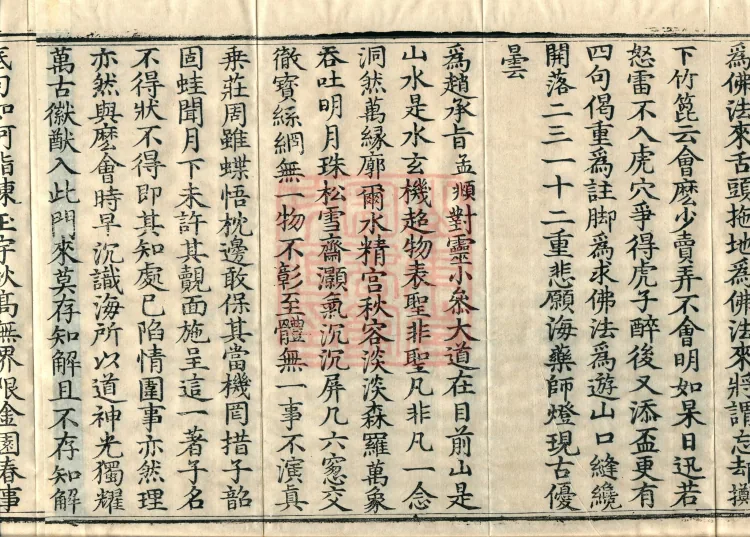 爲佛法來舌頭拖地爲佛法來將謂忘却攙
下竹篦云會麽少賣弄不會明如杲日迅若
怒雷不入虎穴爭得虎子醉後又添盃更有
四句偈重爲註脚爲求佛法爲遊山口縫纔
開落二三一十二重悲願海藥師燈現古優
曇
爲趙承旨孟頫對靈小叅大道在目前山是
山水是水玄機超物表聖非聖凡非凡一念
洞然萬緣廓爾水精宫秋容淡淡森羅萬象
吞吐明月珠松雪齋灝氣沉沉屏几六窓交
徹寶絲網無一物不彰至體無一事不演真
乗莊周雖蝶悟枕邊敢保其當機罔措子韶
固蛙聞月下未許其覿面施呈這一著子名
不得狀不得即其知處已陷情圍事亦然理
亦然與麽會時早沉識海所以道神光獨耀
萬古徽猷入此門來莫存知解且不存知解
底句如何指陳玉宇秋髙無界限金園春事